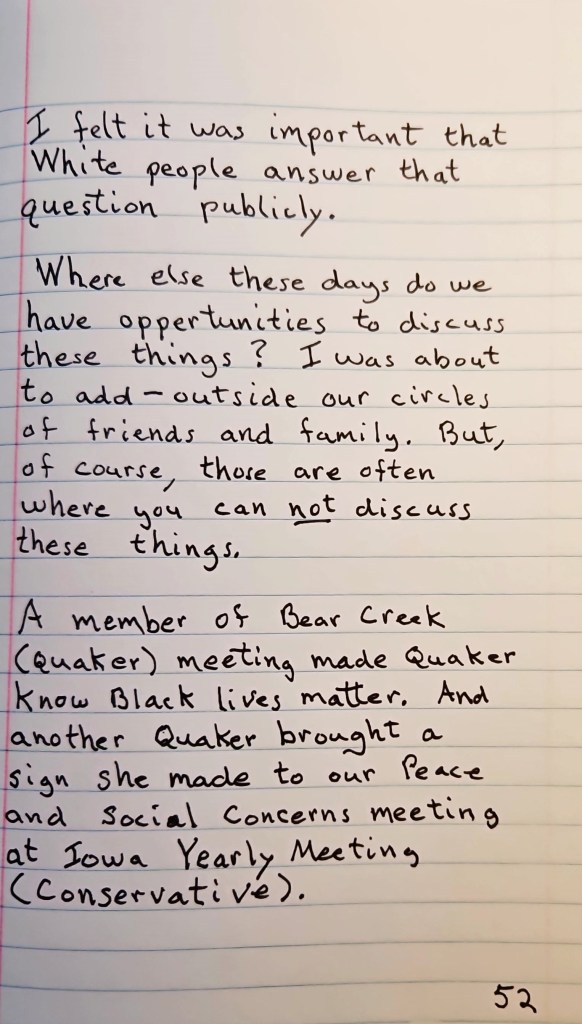 I felt it was important that
White people answer that
question publicly.
Where else these days do we
have oppertunities to discuss
these things? I was about
to add - outside our circles
of friends and family. But,
of course, those are often
where you can not discuss
these things.
A member of Bear Creek
(Quaker) meeting made Quaker
Know Black lives matter. And
another Quaker brought a
sign she made to our Peace
and Social Concerns meeting
at Iowa Yearly Meeting
(Conservative).
52